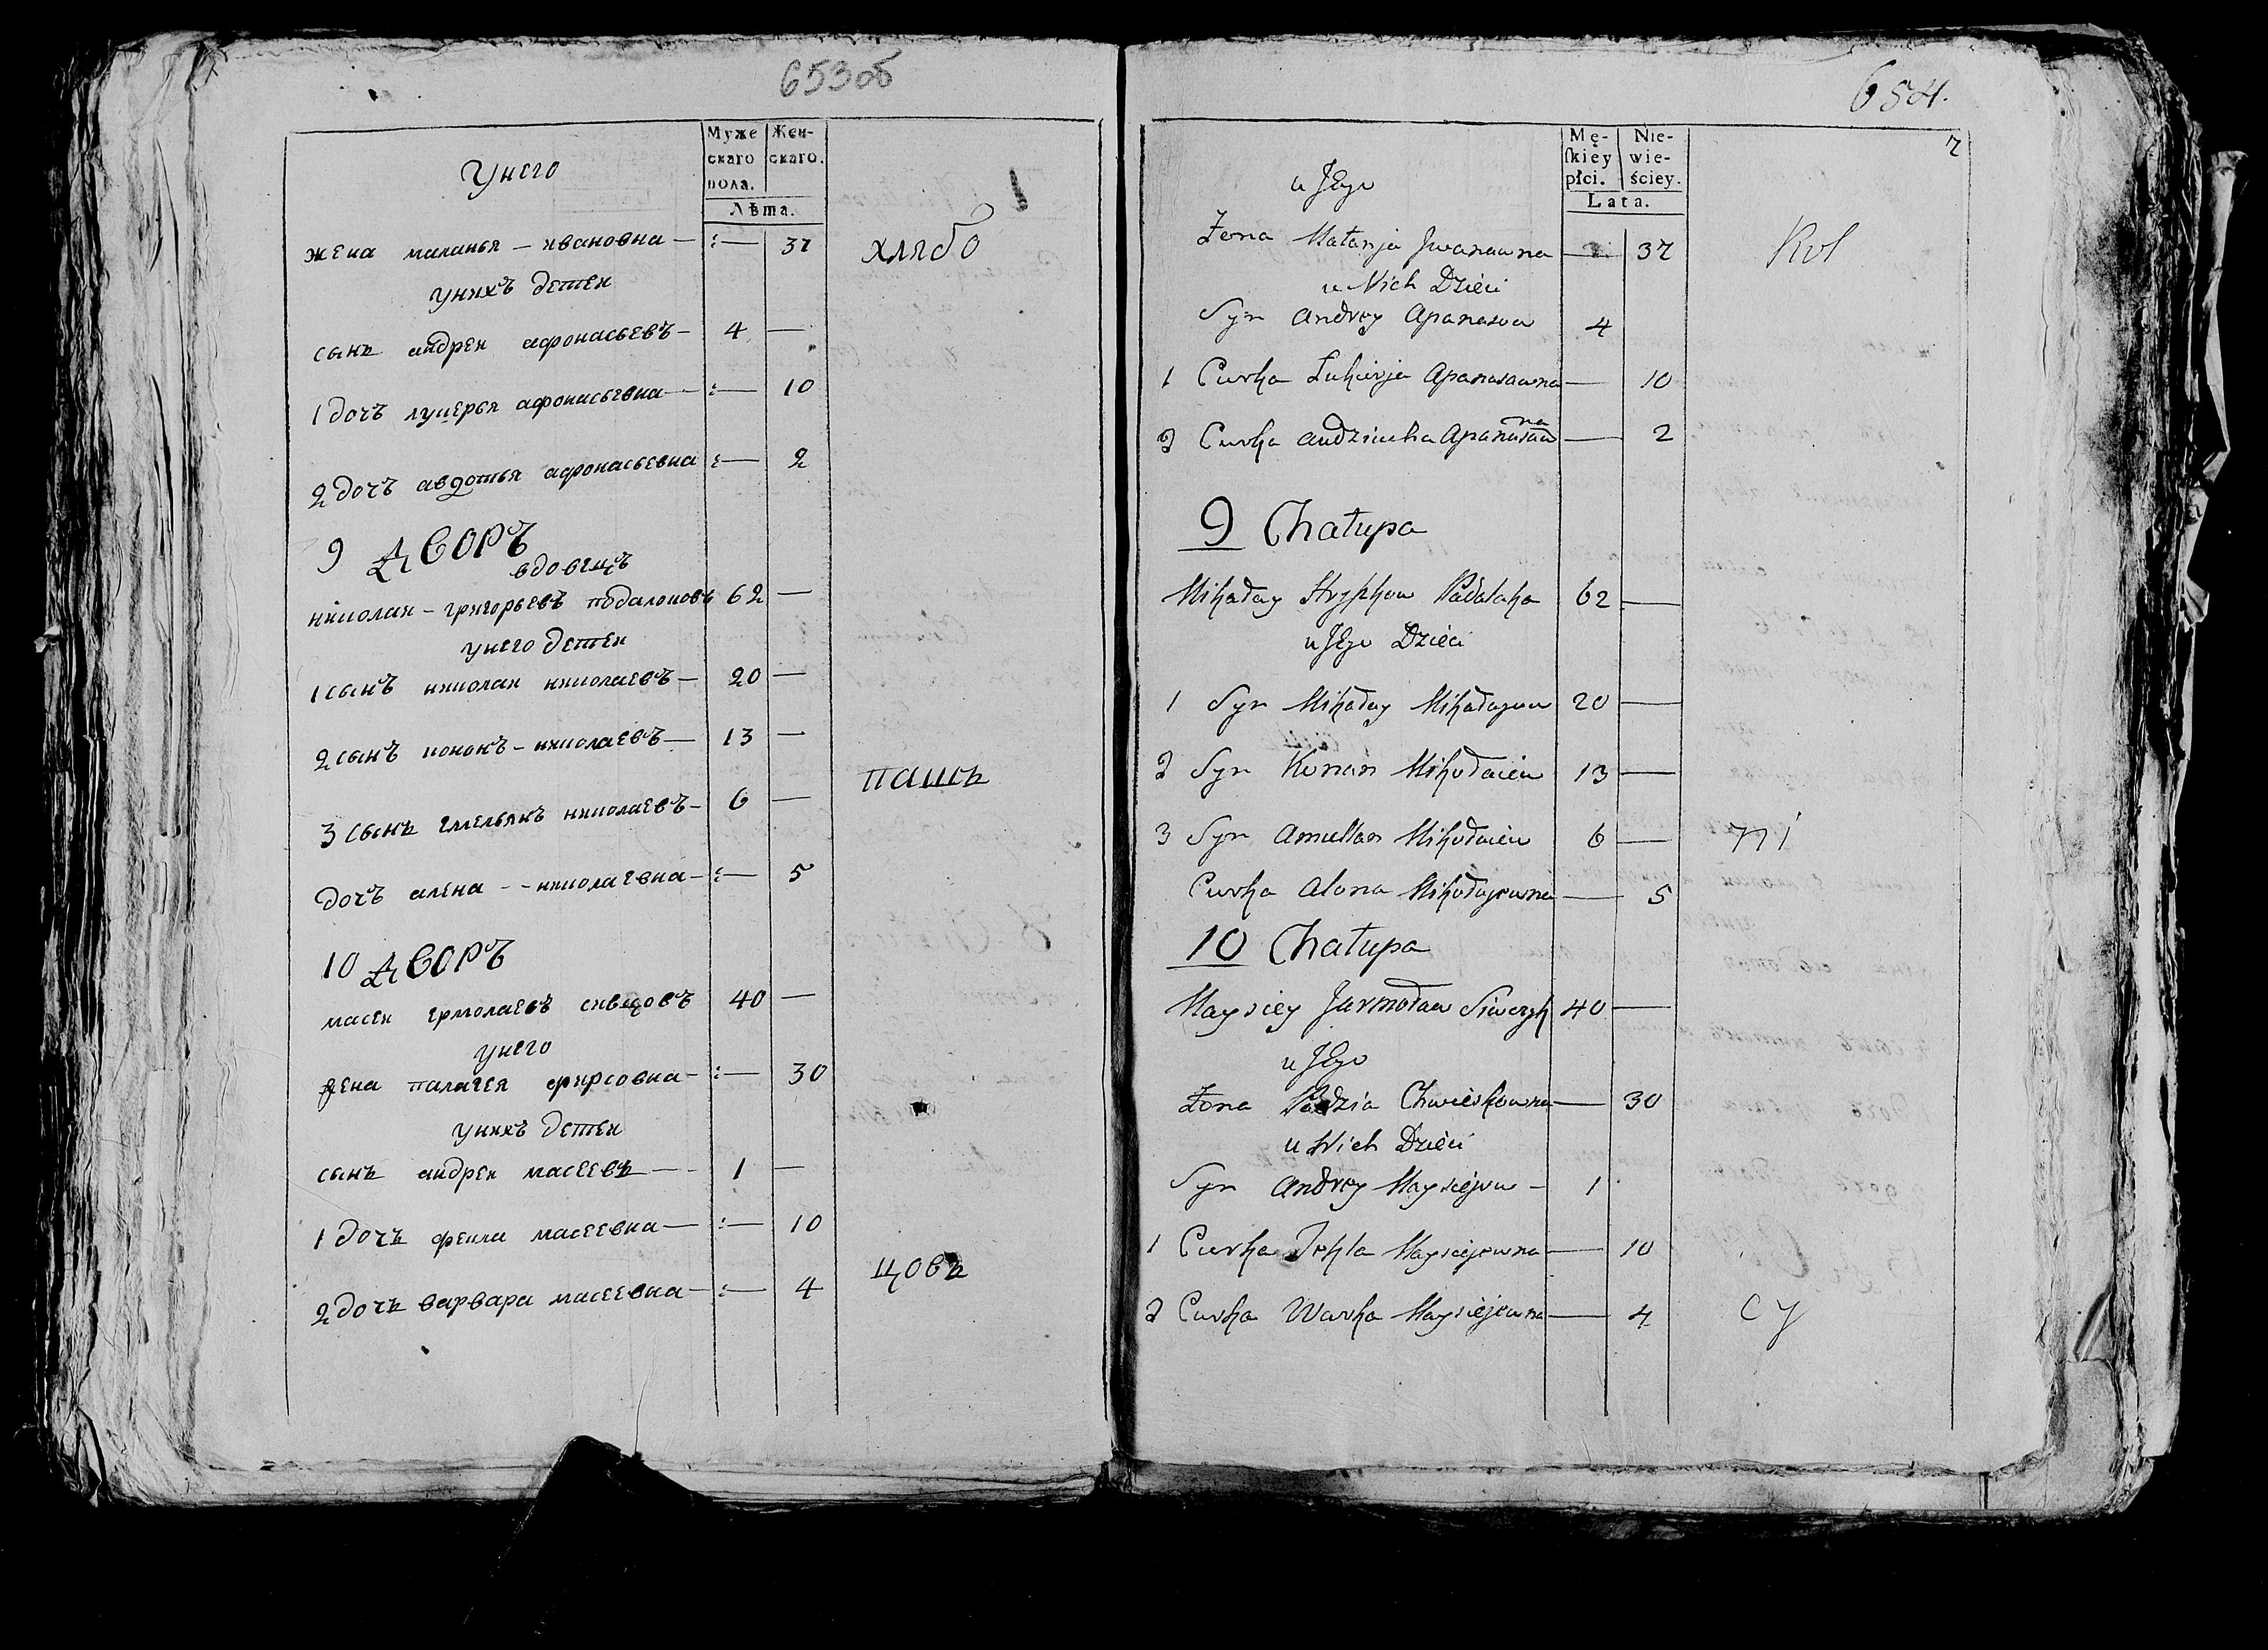 653об
Муже
скаго
пола.
Жен-
скаго.
Лѣта.
Унего
жена маланья – ивановна — 37
хлѣбо
унихъ детеи
сынъ андреи афонасьевъ — 4 —
1 дочъ лукерья афонасьевна — 10
2 дочъ авдотья афонасьевна — 2
9 Дворъ
вдовецъ
николаи – григорьевъ подалоковъ 62 —
унего детеи
1 сынъ николаи николаевъ — 20 —
2 сынъ кононъ – николаевъ — 13 —
пашъ
3 сынъ емельянъ николаевъ — 6 —
дочъ алена – – николаевна — 5
10 Дворъ
масеи ермолаевъ 40 —
унего
жена палагея фирсовна — 30
унихъ детеи
сынъ андреи масеевъ — 1 —
1 дочъ фекла масеевна — 10
цовъ
2 дочъ варвара масеевна — 4
654.
7
Mę-
ſkięy
płci.
Nie-
wie-
ściey.
Lata.
u Jego
Żona Małanja Jwanawna — 37
Kol
u Nich Dzieci
Syn Andrey Apanasow 4
1 Curka Łukierja Apanasawna — 10
na
2 Curka Audziucha Apanasaw — 2
9 Chałupa
Mikałay Hryszkow Padałaka 62 —
u Jego Dzieci
1 Syn Mikałay Mikałayow 20 —
2 Syn Konan Mikołaiew 13 —
3 Syn Amellan Mikołaiew 6 —
Curka Alona Mikołajewna — 5
10 Chałupa
Maysiey Jarmoław 40 —
u Jego
Żona Chwieśkowna — 30
u Nich Dzieci
Syn Andrey Maysiejow – 1
1 Curka Tekla Maysiejewna — 10
2 Curka Warka Maysiejewna — 4
cy